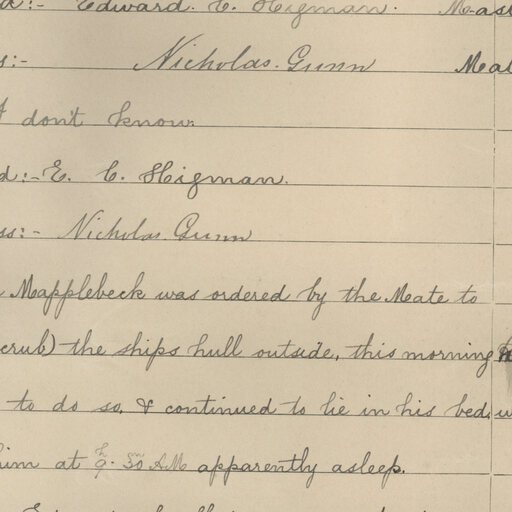 d:- Edward. C. Higman. Mast
s:- Nicholas. Gunn Mat
I don't know.
d:- E. C. Higman.
ss:- Nicholas. Gunn
Mapplebeck was ordered by the Mate to
crub) the ships hull outside, this morning
to do so, & continued to lie in his bed,
him at 9h. 30m AM apparently asleep.